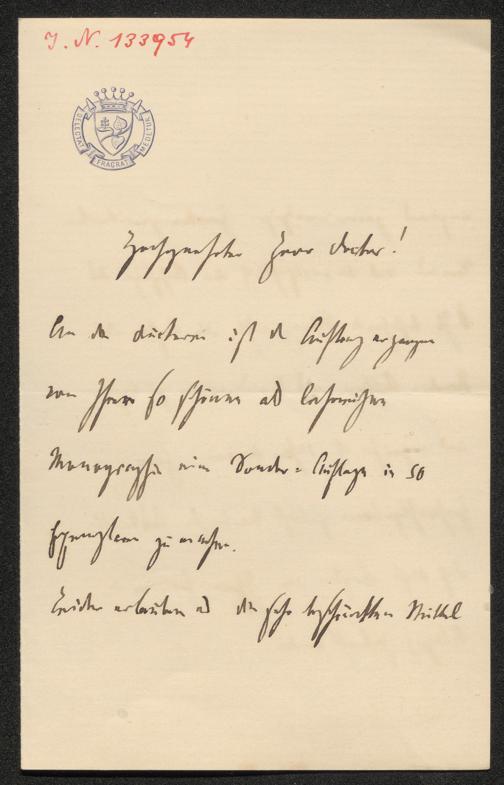 J. N. 133954
DELECTAT FRAGRAT MEDETUR
Hochgeehrter Herr Doctor!
An die Druckerei ist der Auftrag ergangen
von Ihrer so schönen als lehrreichen
Monographie eine Sonder=Auflage in 50
Exemplaren zu machen.
Leider erlauben es die sehr beschränkten Mittel